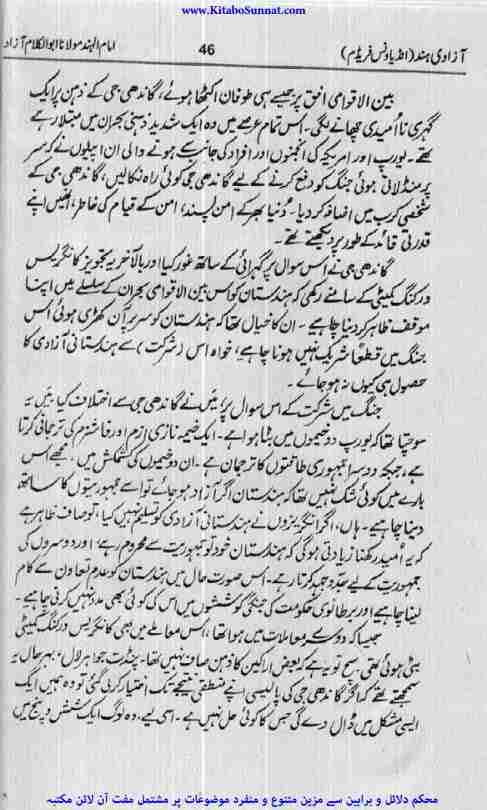 www.KitaboSunnat.com
آزادی ہند (انڈیا ونس فریڈم)
46
امام الہند مولانا ابوالکلام آزاد
بین الاقوامی افق پر جیسے ہی طوفان اکٹھا ہوئے، گاندھی جی کے ذہن پر ایک
گہری نااُمیدی چھانے لگی۔ اس تمام عرصے میں وہ ایک شدید ذہنی بحران میں مبتلا رہے
تھے۔ یورپ اور امریکہ کی انجمنوں اور افراد کی جانب سے ہونے والی ان اپیلوں نے کہ سر
پر منڈلاتی ہوئی جنگ کو دفع کرنے کے لیے گاندھی جی کوئی راہ نکالیں، گاندھی جی کے
شخصی کرب میں اضافہ کر دیا۔ دُنیا بھر کے امن پسند، امن کے قیام کی خاطر، اُنہیں اپنے
قدرتی قائد کے طور پر دیکھتے تھے۔
گاندھی جی نے اس سوال پر گہرائی کے ساتھ غور کیا اور بالآخر یہ تجویز کانگریس
ورکنگ کمیٹی کے سامنے رکھی کہ ہندستان کو اس بین الاقوامی بحران کے سلسلے میں اپنا
موقف ظاہر کر دینا چاہیے۔ ان کا خیال تھا کہ ہندستان کو سر پر آن کھڑی ہوئی اس
جنگ میں قطعاً شریک نہیں ہونا چاہیے، خواہ اس (شرکت) سے ہندستانی آزادی کا
حصول ہی کیوں نہ ہو جائے۔
جنگ میں شرکت کے اس سوال پر میں نے گاندھی جی سے اختلاف کیا۔ میں یہ
سوچتا تھا کہ یورپ دو خیموں میں بٹا ہوا ہے۔ ایک خیمہ نازی ازم اور فاشزم کی ترجمانی کرتا
ہے، جبکہ دوسرا جمہوری طاقتوں کا ترجمان ہے۔ ان دو خیموں کی کشمکش میں، مجھے اس
بارے میں کوئی شک نہیں تھا کہ ہندستان اگر آزاد ہو جائے تو اسے جمہوریتوں کا ساتھ
دینا چاہیے۔ ہاں، اگر انگریزوں نے ہندستانی آزادی کو تسلیم نہیں کیا، تو صاف ظاہر ہے
کہ یہ اُمید رکھنا زیادتی ہوگی کہ ہندستان خود تو جمہوریت سے محروم رہے اور دوسروں کی
جمہوریت کے لیے جدوجہد کرتا رہے۔ اس صورت حال میں ہندستان کو عدم تعاون سے کام
لینا چاہیے اور برطانوی حکومت کی جنگی کوششوں میں اس کی کوئی بھی مدد نہیں کرنی چاہیے۔
جیسا کہ دوسرے معاملات میں ہوا تھا، اس معاملے میں بھی کانگریس ورکنگ کمیٹی
بٹی ہوئی تھی۔ سچ تو یہ ہے کہ بعض اراکین کا ذہن صاف نہیں تھا۔ پنڈت جواہر لال، بہرحال یہ
سمجھتے تھے کہ اگر گاندھی جی کی پالیسی اپنے منطقی نتیجے تک اختیار کر لی گئی تو وہ ہمیں ایک
ایسی مشکل میں ڈال دے گی جس کا کوئی حل نہیں ہے۔ اسی لیے، وہ لوگ ایک شش و پنج میں
محکم دلائل و براہین سے مزین متنوع و منفرد موضوعات پر مشتمل مفت آن لائن مکتبہ